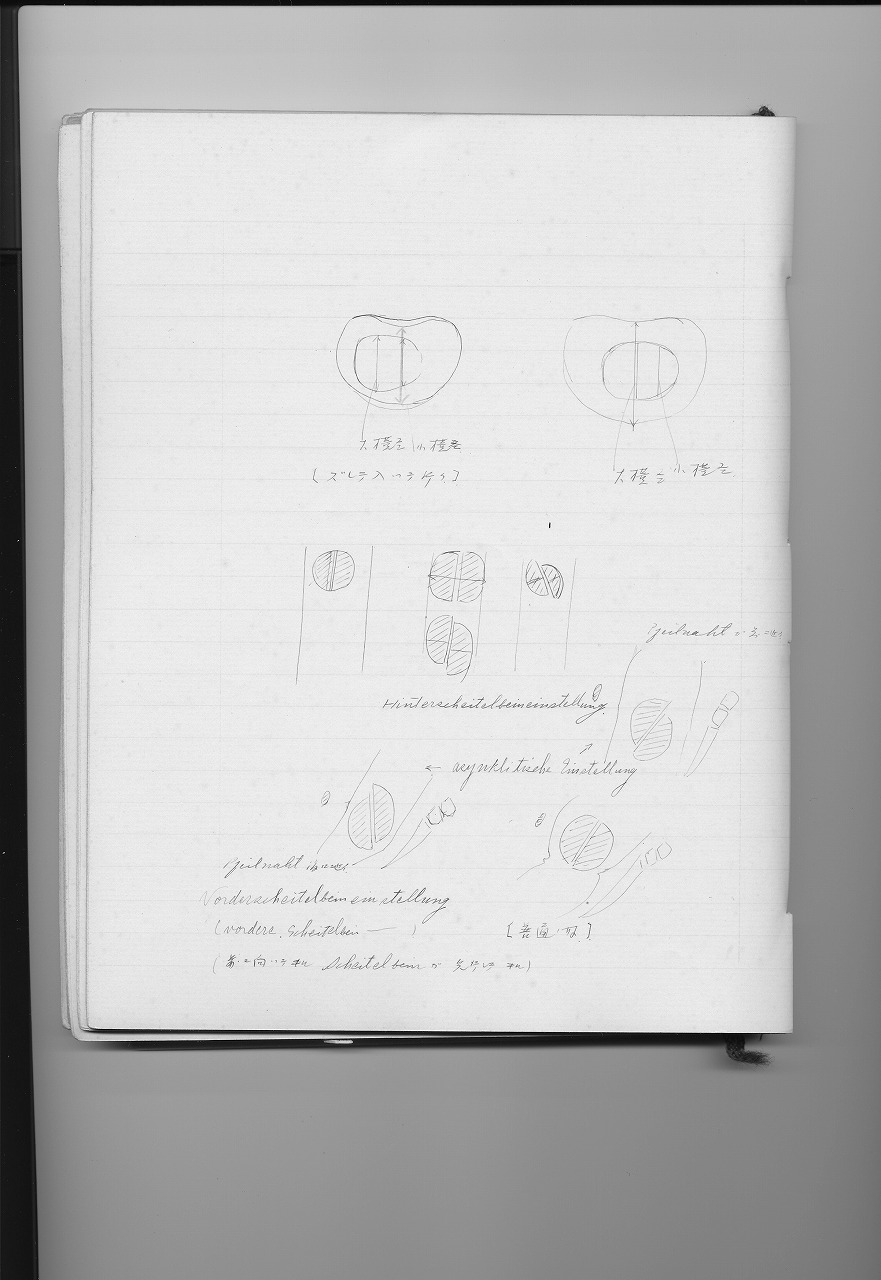 大横径 小横径
[ズレテ入ッテ行ク]
大横径 小横径
Pfeilnaht ガ
Hinterscheitelbeineinstellung.
← asynklitische Einstellung
Pfeilnaht
Vorderscheitelbeineinstellung
(vordere. Scheitelbein — )
[普通]
(前ニ向ッテ Scheitelbein ガ 先行シテ)